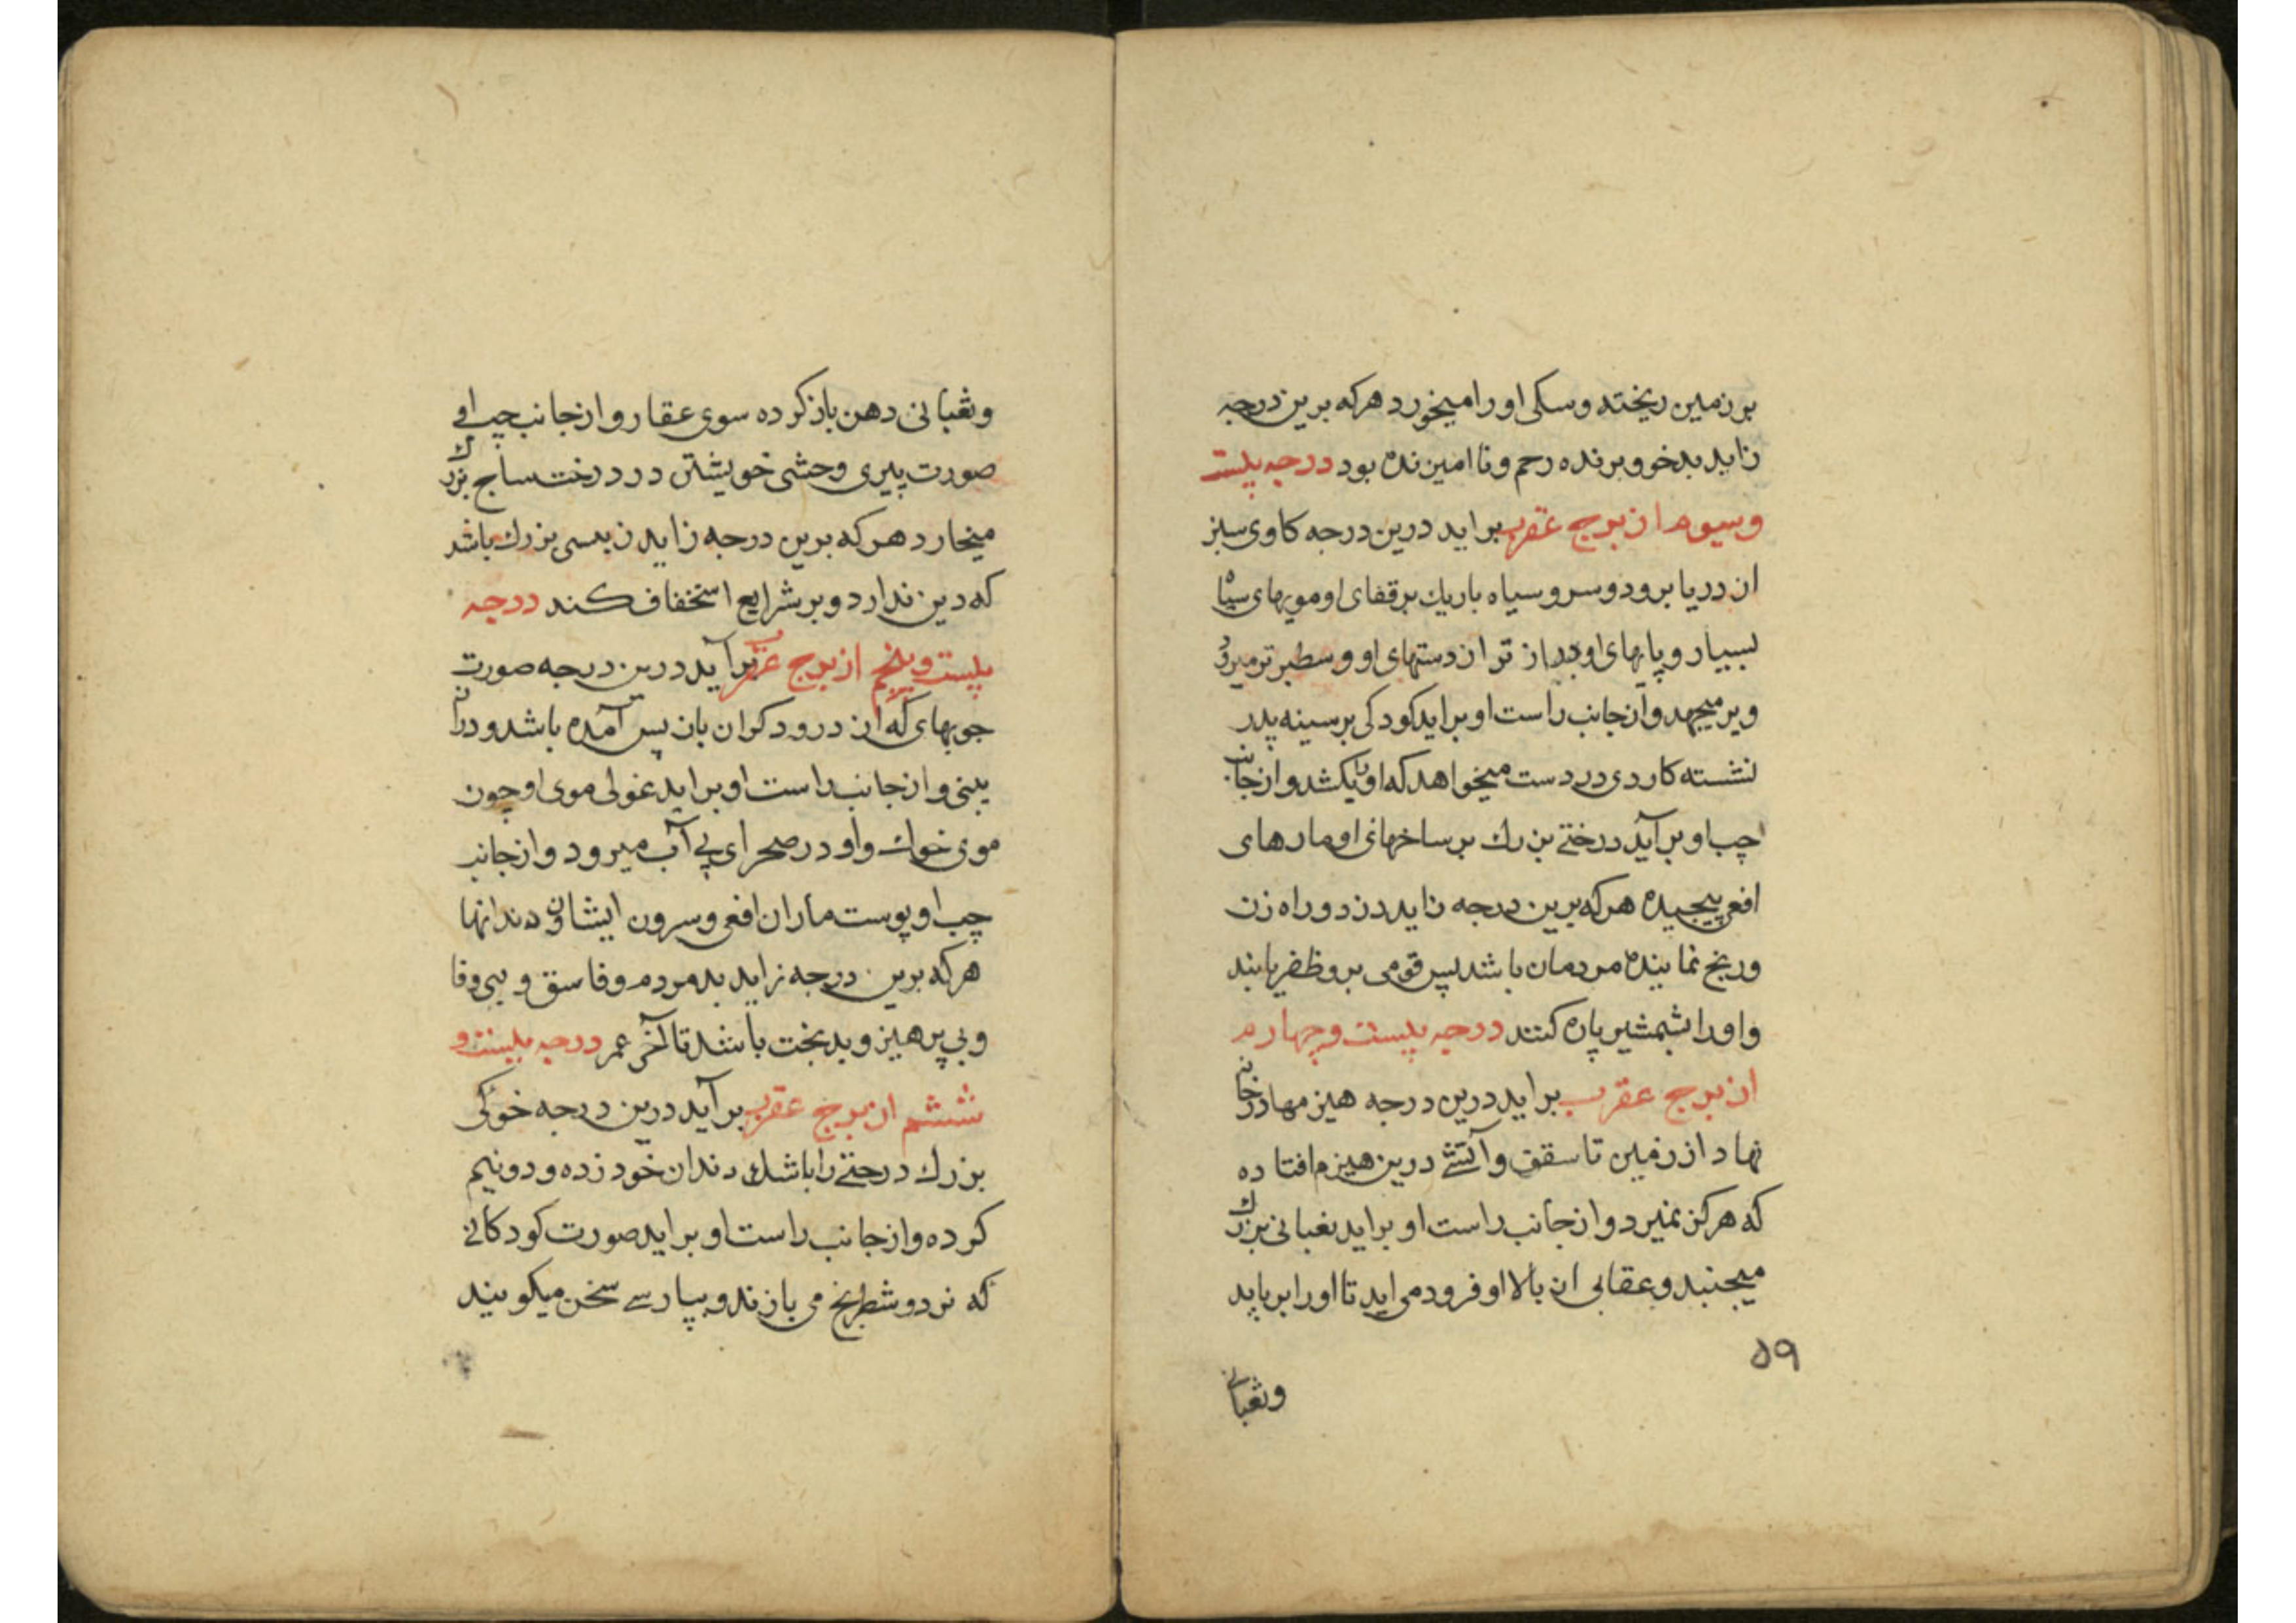 بر زمین ریخته و سکی او را میخورد هرکه برین درجه
زاید بدخو و برنده رحم و نا امین نده بود درجه بیست
و سیوم از برج عقرب براید درین درجه کاوی سبز
از دریا برود و سر و سیاه باریك بر قفای او مویهای سیاه
بسیار و پایهای او دراز تر از دستهای او و سطبر تر میرود
و بر میجهد و از جانب راست او براید کودکی بر سینه پدر
نشسته کاردی در دست میخواهد که او را بکشد و از جانب
چپ او برآید درختی بزرك بر ساخهای او مارهای
افعی پیچیده هرکه برین درجه زاید دزد و راه زن
و رنج نماینده مردمان باشد پس قومی برو ظفر یابند
و او را بشمشیر پاره کنند درجه بیست و چهارم
از برج عقرب براید درین درجه هیزمها در خانه
نهاد از زمین تا سقف و آتشی درین هیزم افتاده
که هرکز نمیرد و از جانب راست او براید ثعبانی بزرك
میجنبد و عقابی از بالا او فرود می اید تا او را برباید
۵۹
و ثعبانی
و ثعبانی دهن باز کرده سوی عقار و از جانب چپ او
صورت پیری وحشی خویشتن در درخت ساج بزرك
میخارد هرکه برین درجه زاید زندیسی بزرك باشد
که دین ندارد و بر شرایع استخفاف کند درجه
بیست و پنجم از برج عقرب برآید درین درجه صورت
جوبهای که از درودکران باز پس آمده باشد و دران
بینی و از جانب راست او براید غولی موی او چون
موی خوك و او در صحرای بی آب میرود و از جانب
چپ او پوست ماران افعی و سرون ایشان و دندانها
هرکه برین درجه زاید بد مردم و فاسق و بی وفا
و بی پرهیز و بدبخت باشد تا آخر عمر درجه بیست و
ششم از برج عقرب برآید درین درجه خوکی
بزرك درختی را باشك دندان خود زده و دو نیم
کرده و از جانب راست او براید صورت کودکانی
که نرد و شطرنج می بازند و بپارسی سخن میکویند